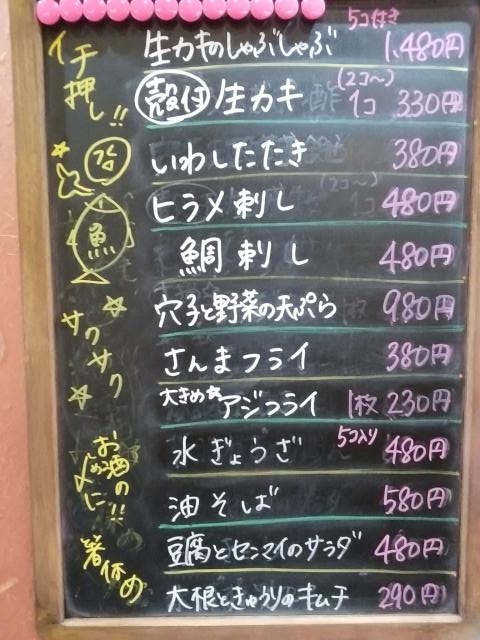 イチ押し!!
5コ付き
生カキのしゃぶしゃぶ 1,480円
(2コ〜)
殻付 生カキ 1コ 330円
いわしたたき 380円
(2コ〜)
ヒラメ刺し 480円
魚
鯛刺し 480円
サクサク
穴子と野菜の天ぷら 980円
さんまフライ 380円
大きめ☆アジフライ 1枚 230円
お酒の〆に!!
水ぎょうざ 5コ入り 480円
油そば 580円
箸休め
豆腐とセンマイのサラダ 480円
大根ときゅうりのキムチ 290円